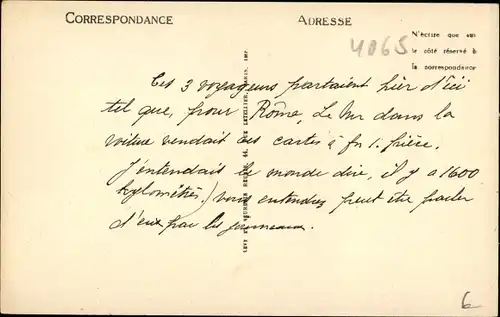 CORRESPONDANCE
ADRESSE
N'écrire que sur
le côté réservé à
la correspondance
4065
Ces 3 voyageurs partaient hier d'ici
tel que, pour Rôme, Le Mr dans la
voiture vendait ces cartes à fr 1. pièce.
J'entendais le monde dire, il y a 1600
kylomètres,) vous entendrez peut être parler
d'eux par les journeaux.
6